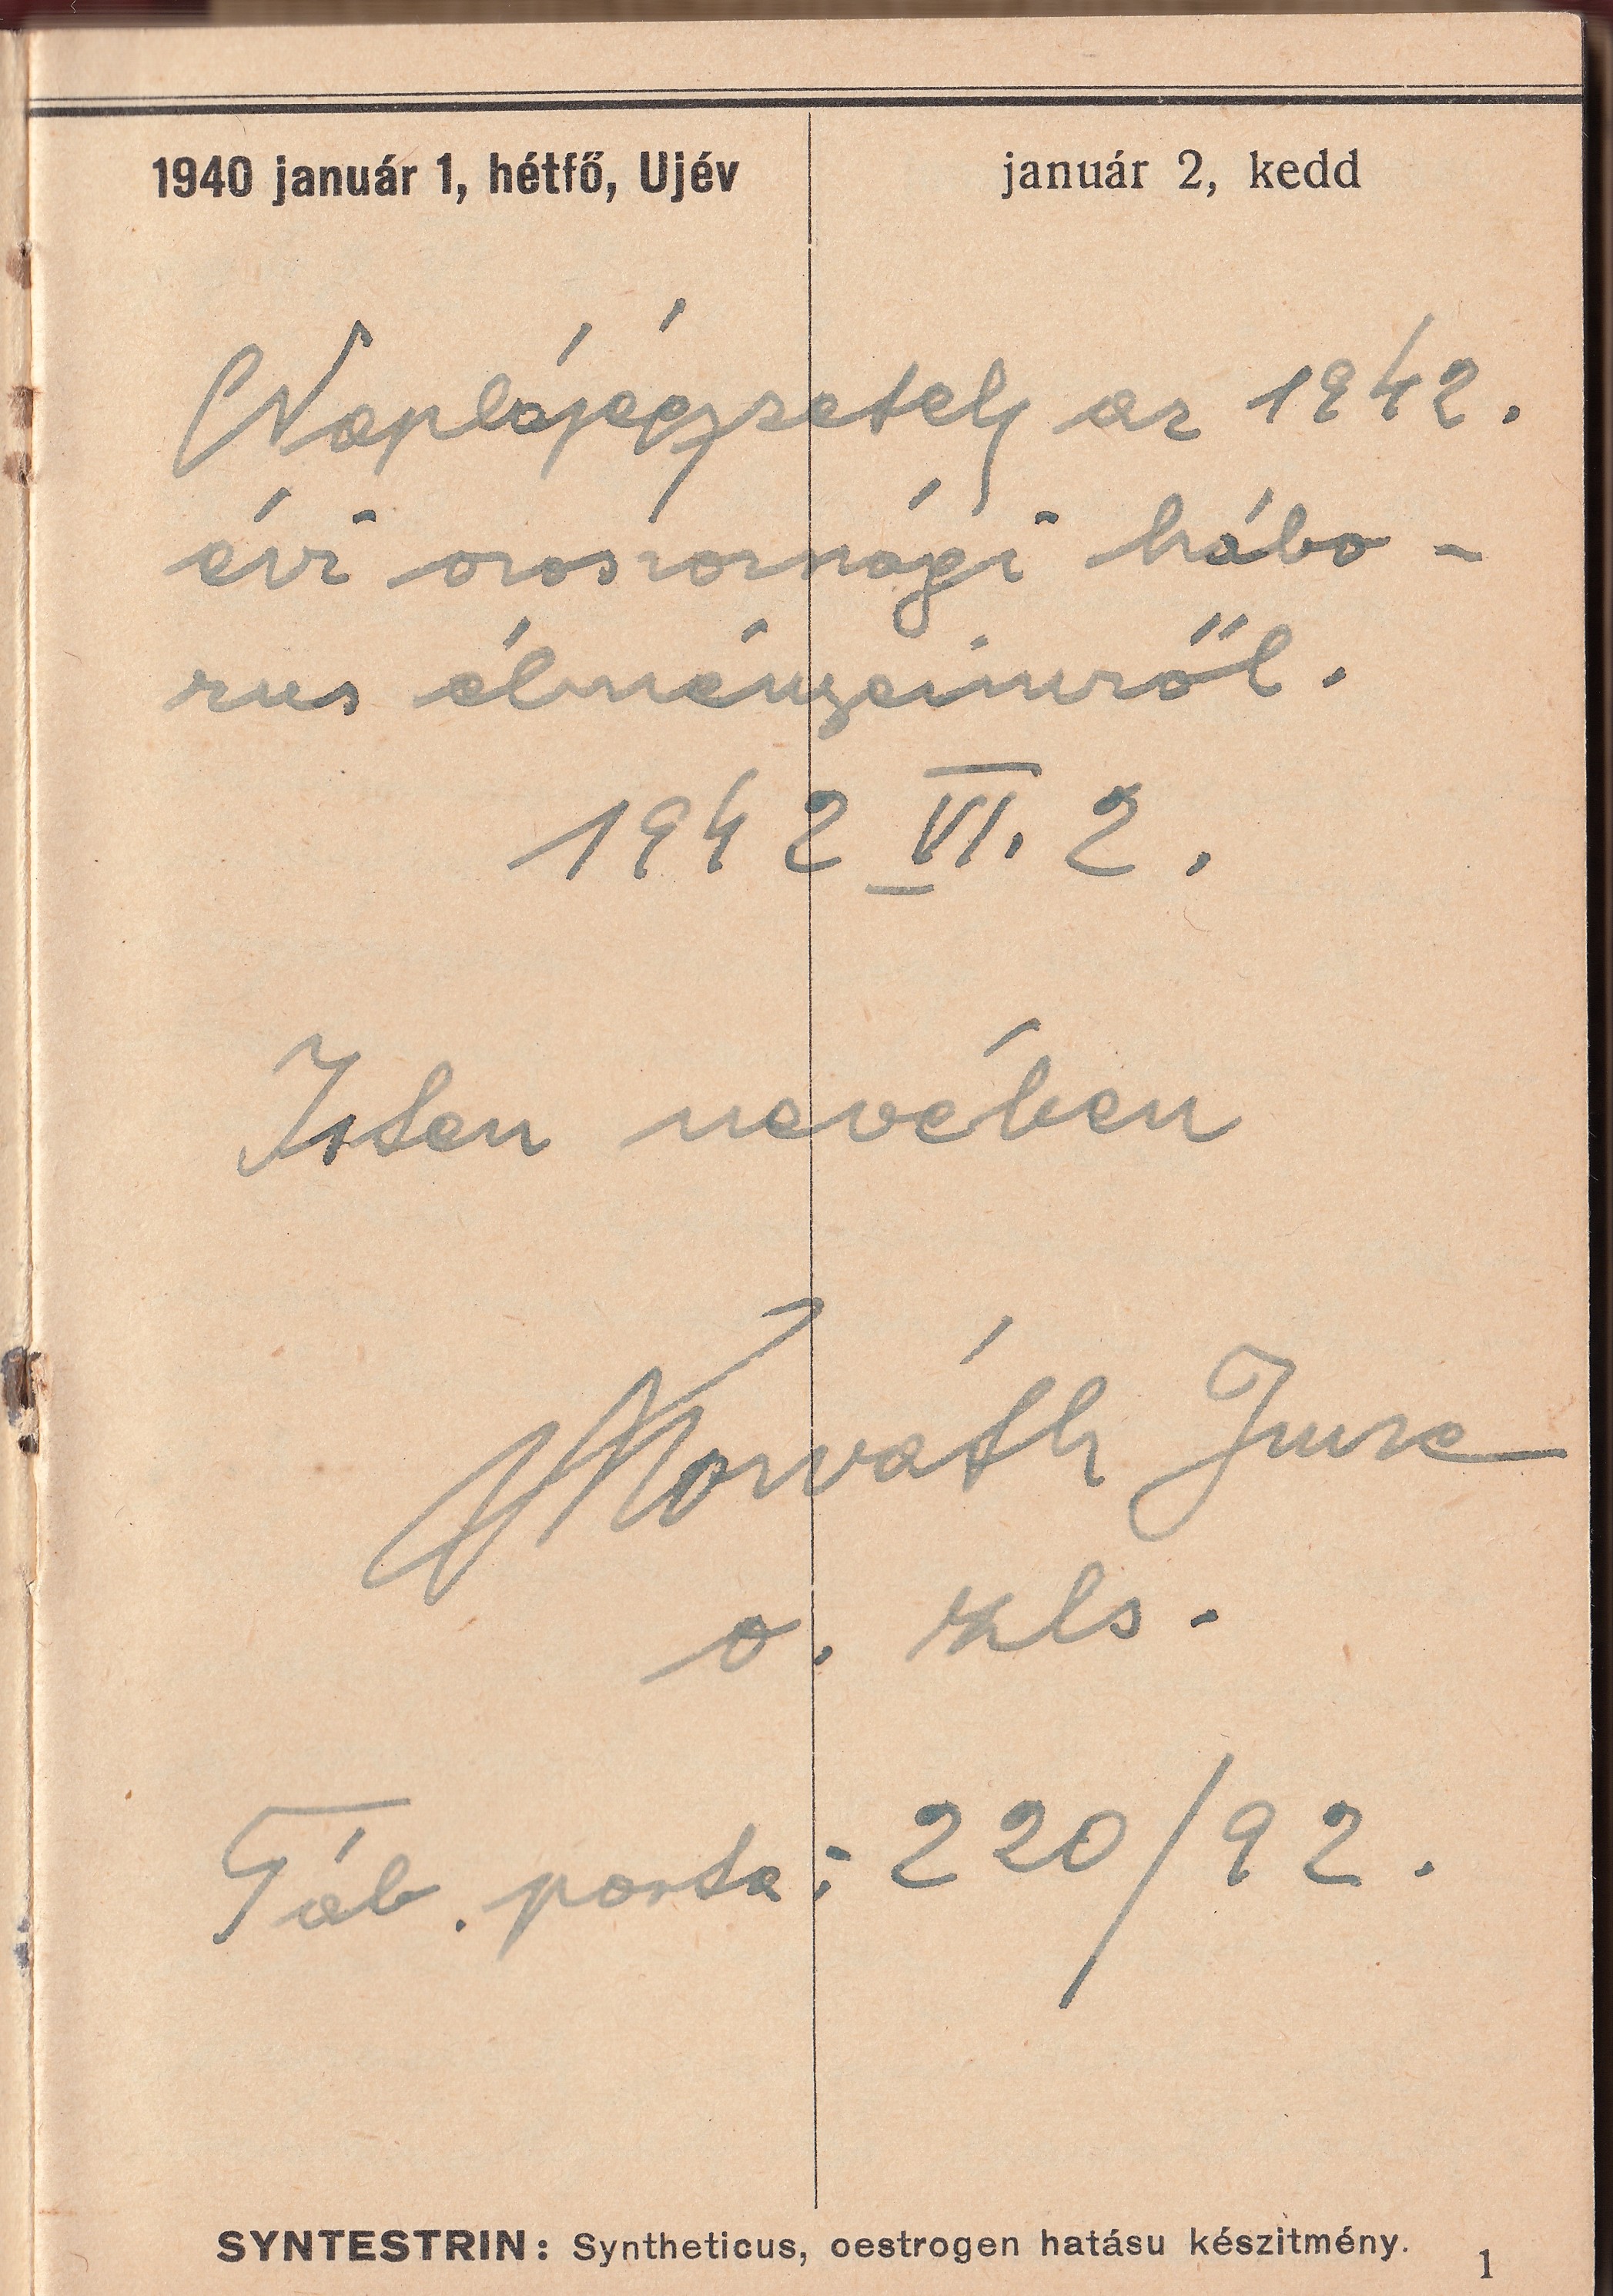 1940 január 1, hétfő, Ujév
január 2, kedd
Naplójegyzetek az 1942.
évi oroszországi hábo-
rus élményeimről.
1942 VI. 2.
Isten nevében
Horváth Imre
o. zls.
Táb. posta: 220/92.
SYNTESTRIN: Syntheticus, oestrogen hatásu készitmény.
1